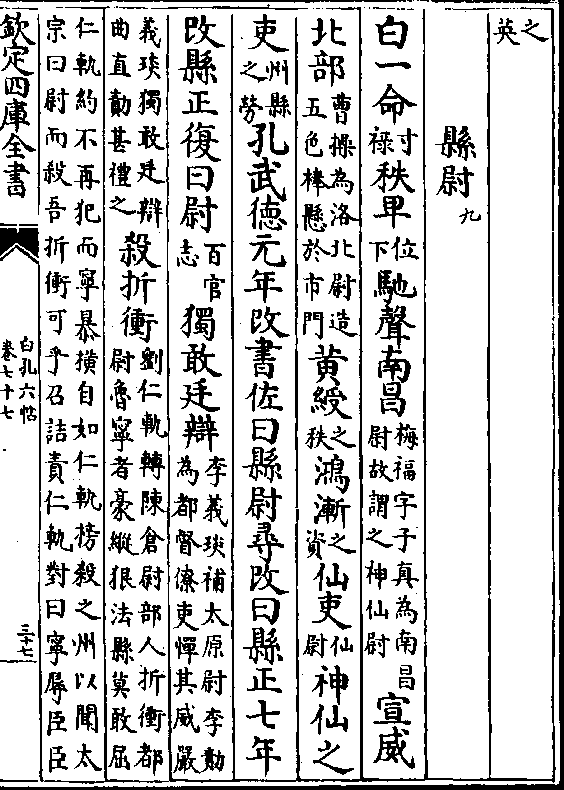 之英
縣尉九
白一命寸祿秩卑位下馳聲南昌梅福字子真為南昌尉故謂之神仙尉宣威
北部曹操為洛北尉造五色棒懸於市門黄綬之秩鴻漸之資仙吏仙尉神仙之
吏州縣之勞孔武德元年改書佐曰縣尉尋改曰縣正七年
改縣正復曰尉百官志獨敢廷辯李義琰補太原尉李勣為都督僚吏憚其威嚴
義琰獨敢廷辯曲直勣甚禮之殺折衝劉仁軌轉陳倉尉部人折衝都尉魯寧者豪縱狠法縣莫敢屈
仁軌約不再犯而寧暴横自如仁軌榜殺之州以聞太宗曰尉而殺吾折衝可乎召詰責仁軌對曰寧辱臣臣
欽定四庫全書
白孔六帖
卷七十七
三十七